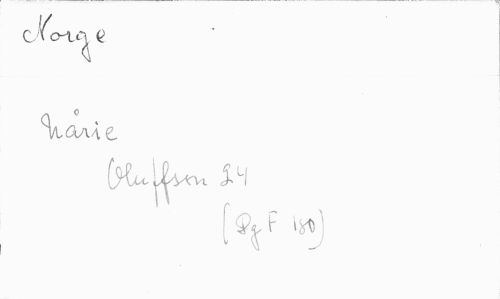 Norge
Nårie
Oluffsen 24
(Dg F 180)